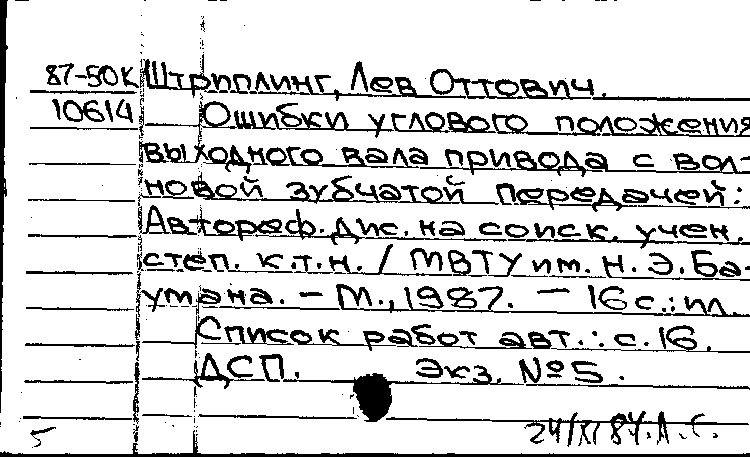 87-50К Штрипплинг, Лев Оттович.
10614 Ошибки углового положения
выходного вала привода с вол-
новой зубчатой передачей:
Автореф. дис. на соиск. учен.
степ. к.т.н. / МВТУ им. Н.Э.Ба-
умана. – М., 1987. – 16 с.: ил.
Список работ авт.: с. 16.
ДСП. Экз. №5.
5